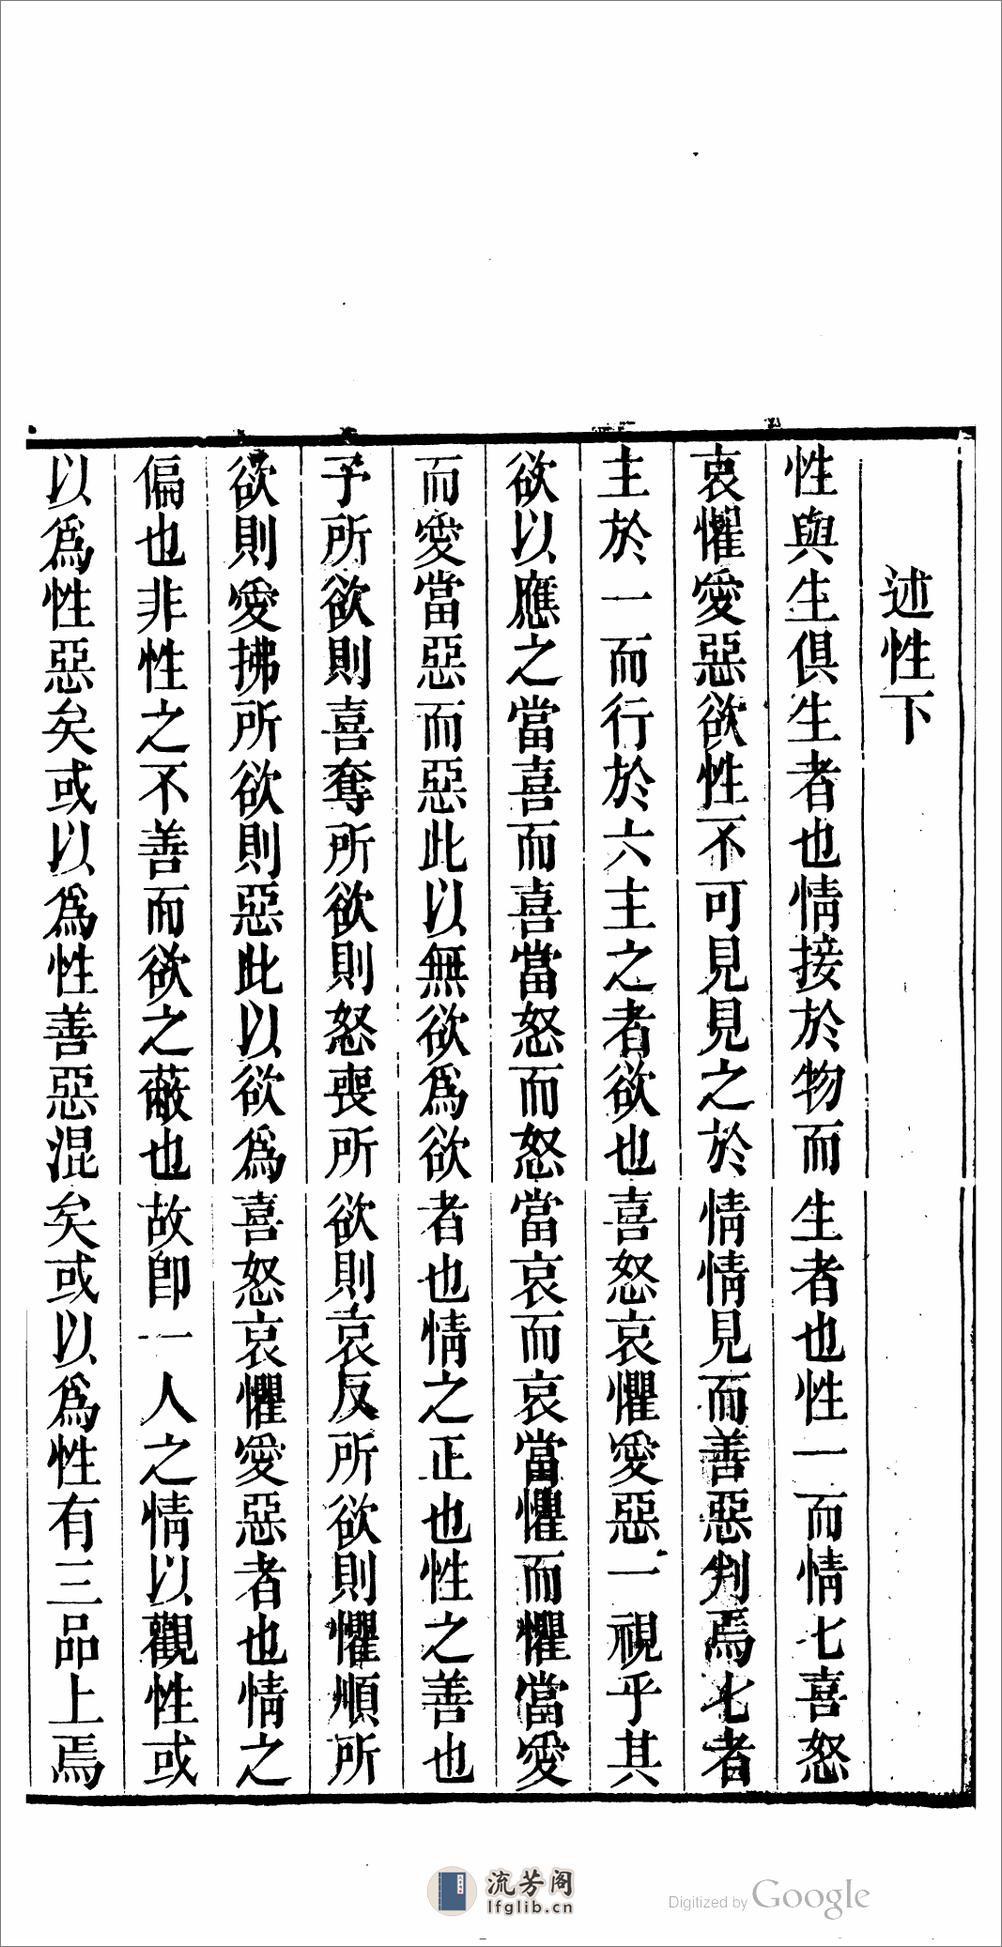 述性下
性與生俱生者也情接於物而生者也性一而情七喜怒
哀懼愛惡欲性不可見見之於情情見而善惡判焉七者
主於一而行於六主之者欲也喜怒哀懼愛惡一視乎其
欲以應之當喜而喜當怒而怒當哀而哀當懼而懼當愛
而愛當惡而惡此以無欲爲欲者也情之正也性之善也
予所欲則喜奪所欲則怒喪所欲則哀反所欲則懼順所
欲則愛拂所欲則惡此以欲爲喜怒哀懼愛惡者也情之
偏也非性之不善而欲之蔽也故卽一人之情以觀性或
以爲性惡矣或以爲性善惡混矣或以爲性有三品上焉
流芳阁
lfglib.cn
Digitized by Google